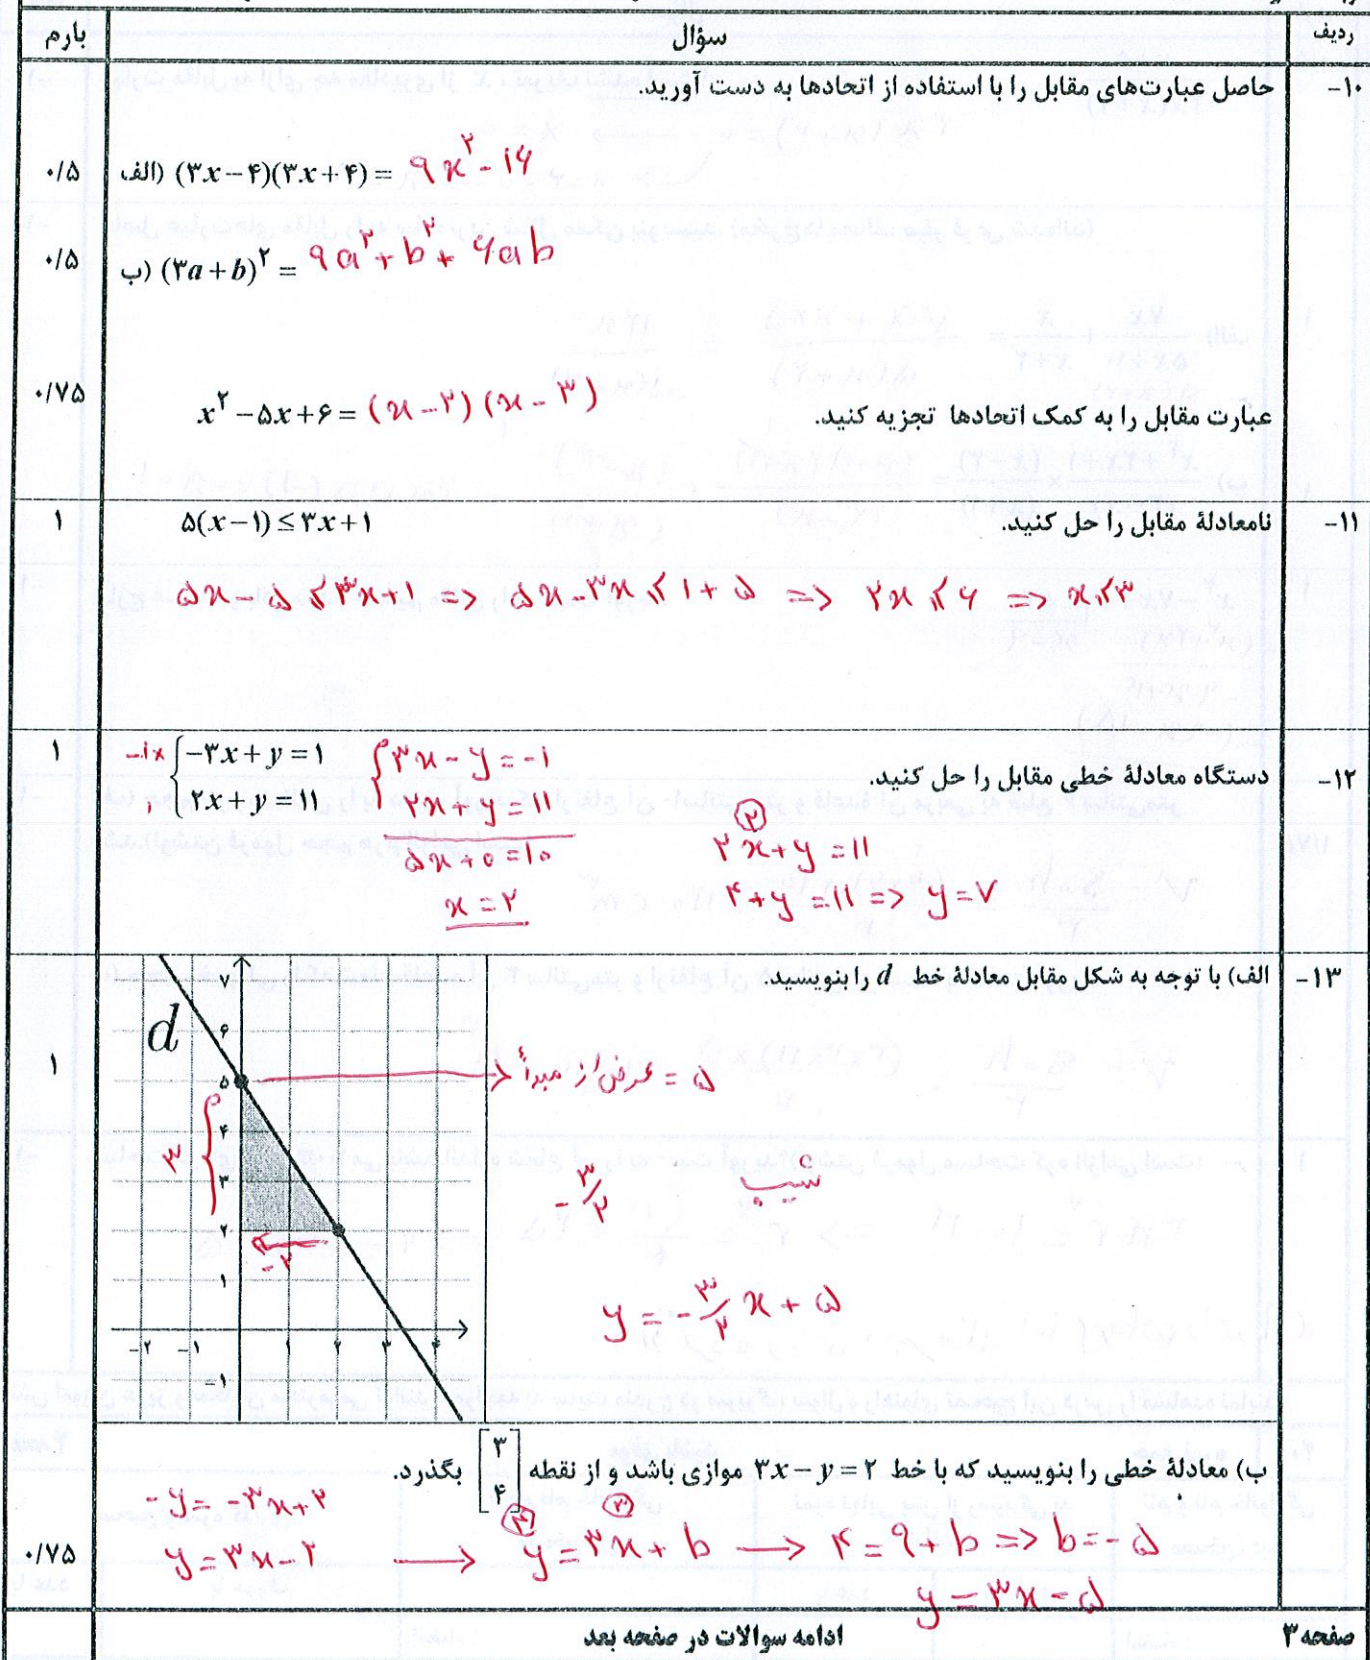 ردیف سؤال بارم
۱۰- حاصل عبارت‌های مقابل را با استفاده از اتحادها به دست آورید.
الف) (۳x-۴)(۳x+۴) = ۹x²-۱۶ ۰/۵
ب) (۳a+b)² = ۹a²+b²+۶ab ۰/۵
عبارت مقابل را به کمک اتحادها تجزیه کنید. x²-۵x+۶ = (x-۲)(x-۳) ۰/۷۵
۱۱- نامعادلهٔ مقابل را حل کنید. ۵(x-۱)≤۳x+۱ ۱
۵x-۵≤۳x+۱ => ۵x-۳x≤۱+۵ => ۲x≤۶ => x≤۳
۱۲- دستگاه معادلهٔ خطی مقابل را حل کنید. ۱
-۱× { -۳x+y=۱
۱ ۲x+y=۱۱
{ ۳x-y=-۱
۲x+y=۱۱
۵x+۰=۱۰
x=۲
۲
۲x+y=۱۱
۴+y=۱۱ => y=۷
۱۳- الف) با توجه به شکل مقابل معادلهٔ خط d را بنویسید. ۱
d
۷
۶
۵
۴
۳
۲
۱
-۱
-۲ -۱ ۱ ۲ ۳ ۴
۳
-۲
عرض از مبدأ = ۵
شیب -۳/۲
y=-۳/۲x+۵
ب) معادلهٔ خطی را بنویسید که با خط ۳x-y=۲ موازی باشد و از نقطه [۳ ۴] بگذرد. ۰/۷۵
-y=-۳x+۲
۴ ۳
y=۳x-۲ → y=۳x+b → ۴=۹+b => b=-۵
y=۳x-۵
صفحه ۳ ادامه سوالات در صفحه بعد